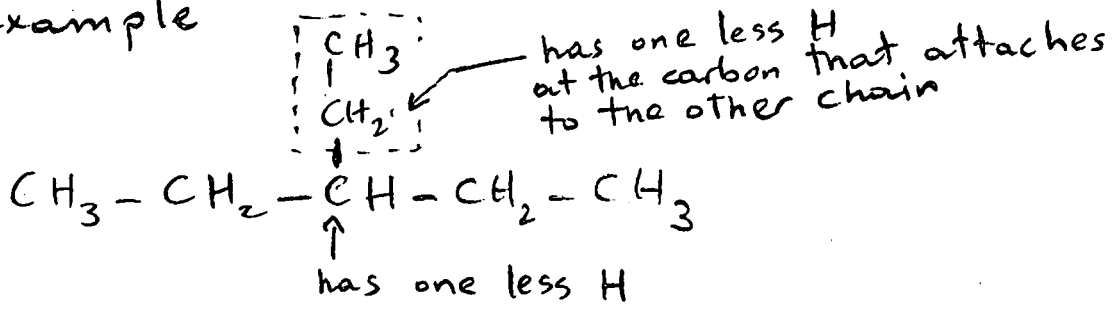 xample
CH3
has one less H
at the carbon that attaches
to the other chain
CH2
CH3 - CH2 - CH - CH2 - CH3
has one less H